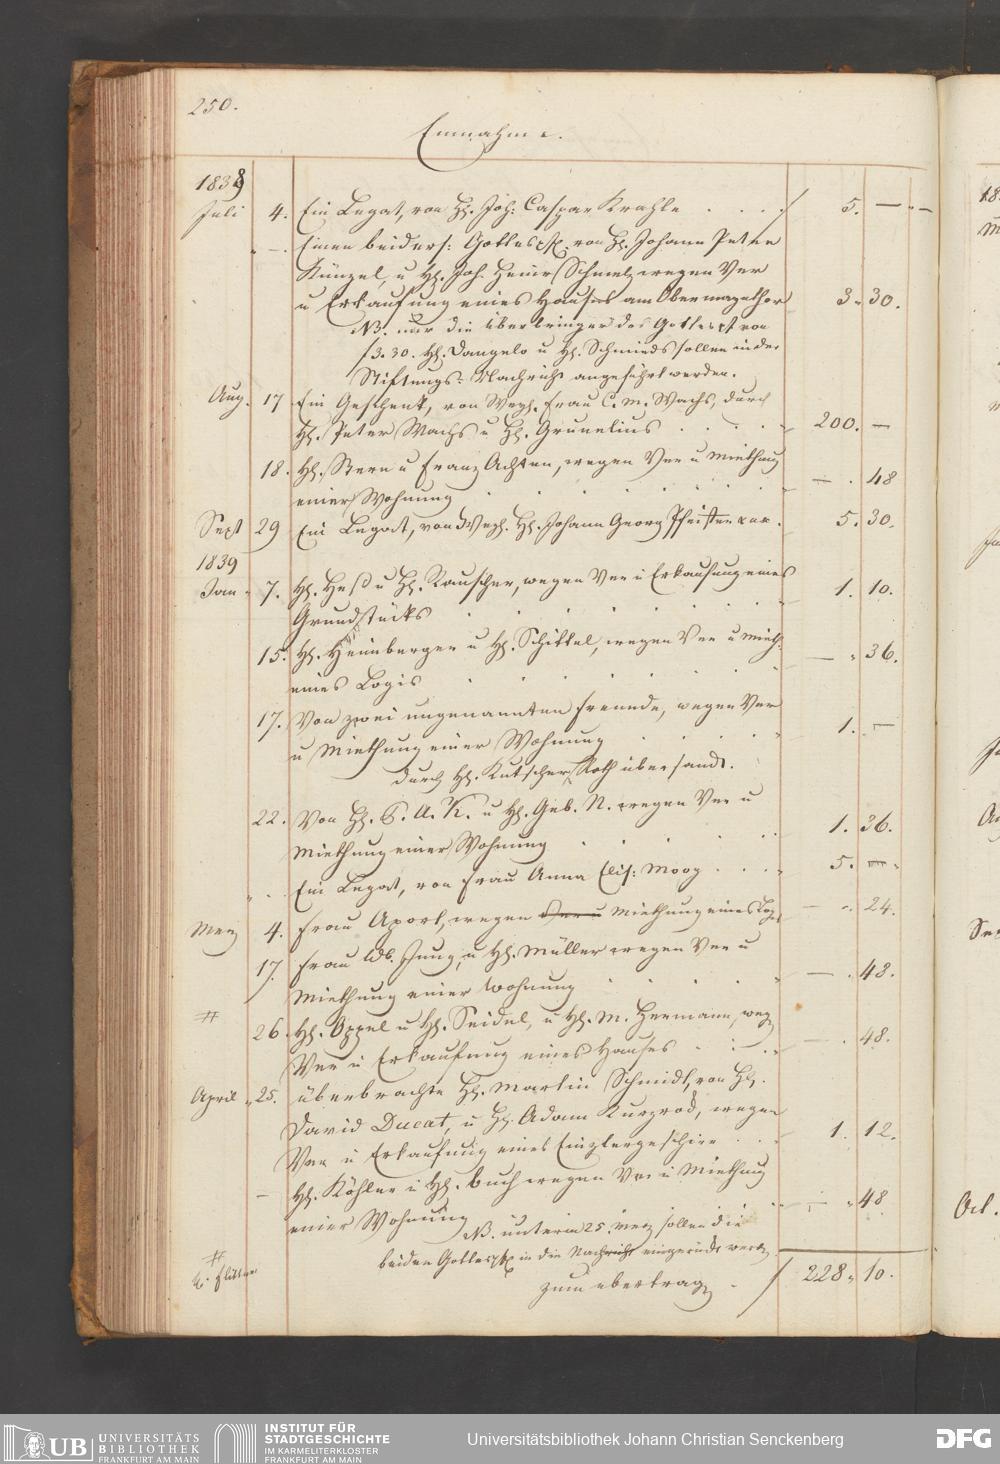 250.
Einnahme.
1838
Juli 4. Ein Legat, von H. Joh: Caspar Krahle . . . . f 5. —
„ — Einen beiders: Gottes von H. Johann Peter
Künzel, u H. Joh. Heinr Schmelz wegen Ver
u Erkaufung eines Hauses am Obermaynthor 3. 30.
NB. nur die Überbringer des Gottes von
f 3. 30. H. Dangelo u H. Schmieds sollen in der
Stiftungs: Nachricht angeführt werden.
Aug. 17 Ein Geschenk, von Frau C. M. Wachs, durch
H. Peter Wachs u H. Grunelius . . . . 200. —
18. H. Stern u Franz Achten, wegen Ver u Miethung
einer Wohnung — . 48
Sept 29 Ein Legat, von H. Johann Georg Pfeister . 5. 30.
1839
Jan 7. H. Heß u H. Rauscher, wegen Ver u Erkaufung eines
Grundstücks 1. 10.
15. H. Heimberger u H. Schittel, wegen Ver u Mieth.
eines Logis — „ 36.
17. Von zwei ungenannten Freunde, wegen Ver
u Miethung einer Wohnung 1. —
durch H. Kutscher Roth übersandt.
22. Von H. A. K. u H. Geb. N. wegen Ver u
Miethung einer Wohnung 1. 36.
„ . Ein Legat, von Frau Anna Elis: Moog . . . 5. —
Merz 4. Frau Aport, wegen Ver u Miethung eines Log. — „ 24.
17. Frau Wb. Jung, u H. Müller wegen Ver u
Miethung einer Wohnung — . 48.
# 26. H. Oppel u H. Seidel, u H. M. Hermann, weg
Ver u Erkaufung eines Hauses — . 48.
April „ 25. überbrachte H. Martin Schmidt, von H.
David Ducat, u H. Adam Kurzrod, wegen
Ver u Erkaufung eines 1. 12.
— H. Köhler u H. Buch wegen Ver u Miethung
einer Wohnung — „ 48
NB. unterm 25. Merz sollen die
beiden Gottes in die Nachricht eingerückt werd
#
zum Uebertrag . f 228 „ 10.
UB UNIVERSITÄTS
BIBLIOTHEK
FRANKFURT AM MAIN
INSTITUT FÜR
STADTGESCHICHTE
IM KARMELITERKLOSTER
FRANKFURT AM MAIN
Universitätsbibliothek Johann Christian Senckenberg
DFG